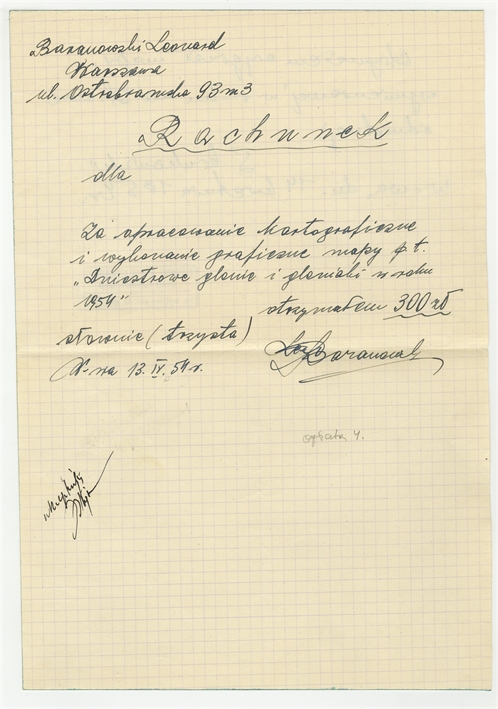 Baranowski Leonard
Warszawa
ul. Ostrobramska 93 m 3
Rachunek
dla
Za opracowanie kartograficzne
i wykonanie graficzne mapy p.t.
w roku
1954"
otrzymałem 300 zł
słownie (trzysta)
W-wa 13. IV. 54 r.
Baranowski